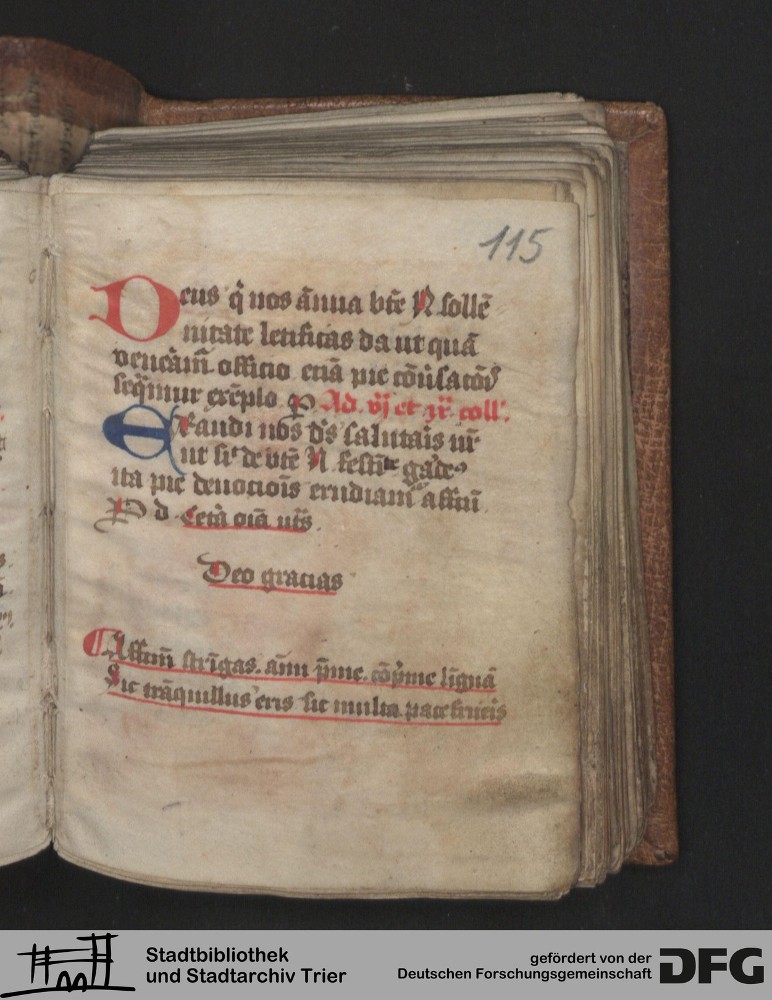 115
Deus q̄ nos ānua bt̄e N solle̅
nitate letificas da ut quā
ven̄eām̄ officio etiā pie cōv̄sacōīs
seq̄mur exēplo P Ad vj et ix coll'
Exaudi nos ds̄ salutāis nr̄
ut sic̄ de bt̄e N festīte gade
ita pie deuocōis erudiam̄ affcū
P d Cetā oīa ut s̄
Deo gracias
Affcūm strīgas. aīm p̄me. cōp̄me līguā
Sic trāquillus eris sic multa pace frueris
Stadtbibliothek
und Stadtarchiv Trier
gefördert von der
Deutschen Forschungsgemeinschaft
DFG